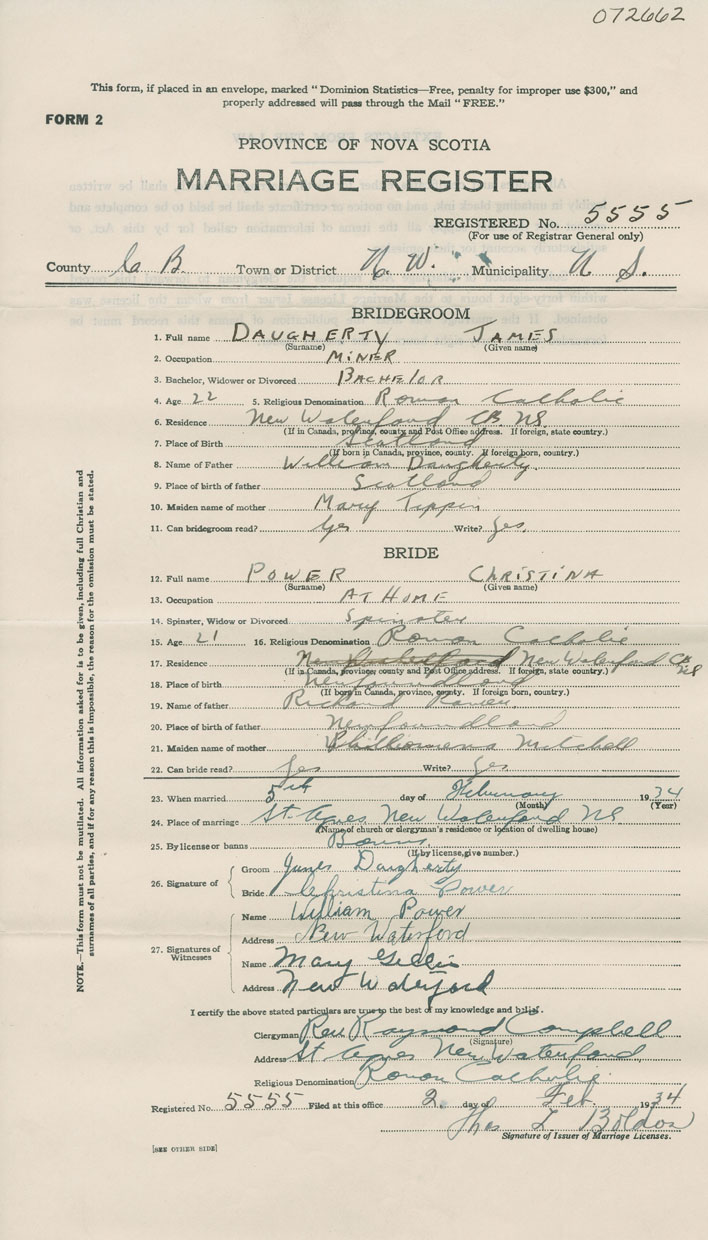 072662
This form, if placed in an envelope, marked "Dominion Statistics—Free, penalty for improper use $300," and
properly addressed will pass through the Mail "FREE."
FORM 2
PROVINCE OF NOVA SCOTIA
MARRIAGE REGISTER
REGISTERED No. 5555
(For use of Registrar General only)
County C. B. Town or District N. W. Municipality N S.
BRIDEGROOM
1. Full name DAUGHERTY JAMES
(Surname) (Given name)
2. Occupation MINER
3. Bachelor, Widower or Divorced BACHELOR
4. Age 22 5. Religious Denomination Roman Catholic
6. Residence New Waterford CB. NS.
(If in Canada, province, county and Post Office address. If foreign, state country.)
7. Place of Birth Scotland
(If born in Canada, province, county. If foreign born, country.)
8. Name of Father William Daugherty
9. Place of birth of father Scotland
10. Maiden name of mother Mary Tippin
11. Can bridegroom read? Yes Write? Yes.
BRIDE
12. Full name POWER CHRISTINA
(Surname) (Given name)
13. Occupation AT HOME
14. Spinster, Widow or Divorced Spinster
15. Age 21 16. Religious Denomination Roman Catholic
17. Residence New Waterford CB NS
(If in Canada, province, county and Post Office address. If foreign, state country.)
18. Place of birth Newfoundland
(If born in Canada, province, county. If foreign born, country.)
19. Name of father Richard Power
20. Place of birth of father Newfoundland
21. Maiden name of mother Philliomena Mitchell
22. Can bride read? Yes Write? Yes
23. When married 5th day of February 1934
(Month) (Year)
24. Place of marriage St. Agnes New Waterford NS.
(Name of church or clergyman's residence or location of dwelling house)
25. By license or banns Banns
(If by license, give number.)
26. Signature of Groom James Daugherty
Bride Christina Power
27. Signatures of Witnesses
Name William Power
Address New Waterford
Name Mary Gillis
Address New Waterford
I certify the above stated particulars are true to the best of my knowledge and belief.
Clergyman Rev Raymond Campbell
(Signature)
Address St Agnes New Waterford
Religious Denomination Roman Catholic
Registered No. 5555 Filed at this office 2. day of Feb 1934
Thos L Boldon
Signature of Issuer of Marriage Licenses.
[SEE OTHER SIDE]
NOTE.—This form must not be mutilated. All information asked for is to be given, including full Christian and
surnames of all parties, and if for any reason this is impossible, the reason for the omission must be stated.